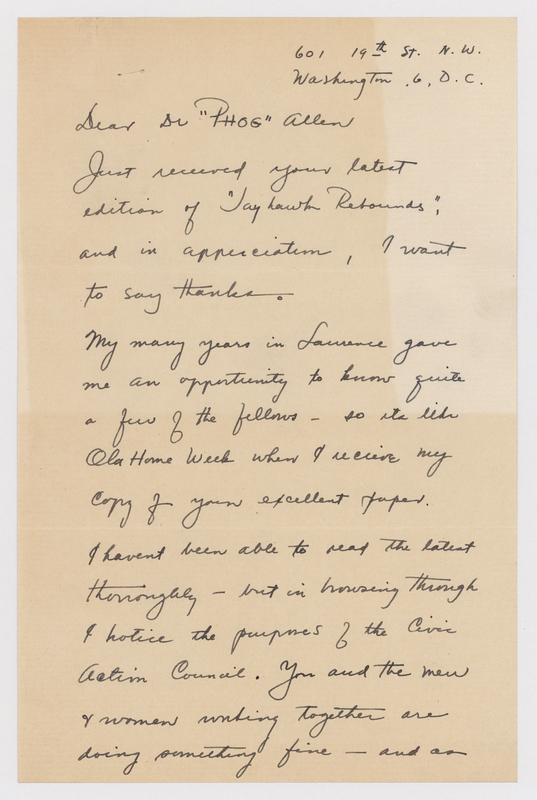 601 19th St. N.W.
Washington .6, D.C.
Dear Dr "PHOG" Allen
Just received your latest
edition of "Jayhawk Rebounds",
and in appreciation, I want
to say thanks.
My many years in Lawrence gave
me an opportunity to know quite
a few of the fellows - so its like
Old Home Week when I recieve my
copy of your excellent paper.
I havent been able to read the latest
thorroughly - but in browsing through
I notice the purposes of the Civic
Action Council. You and the men
& women working together are
doing something fine - and as